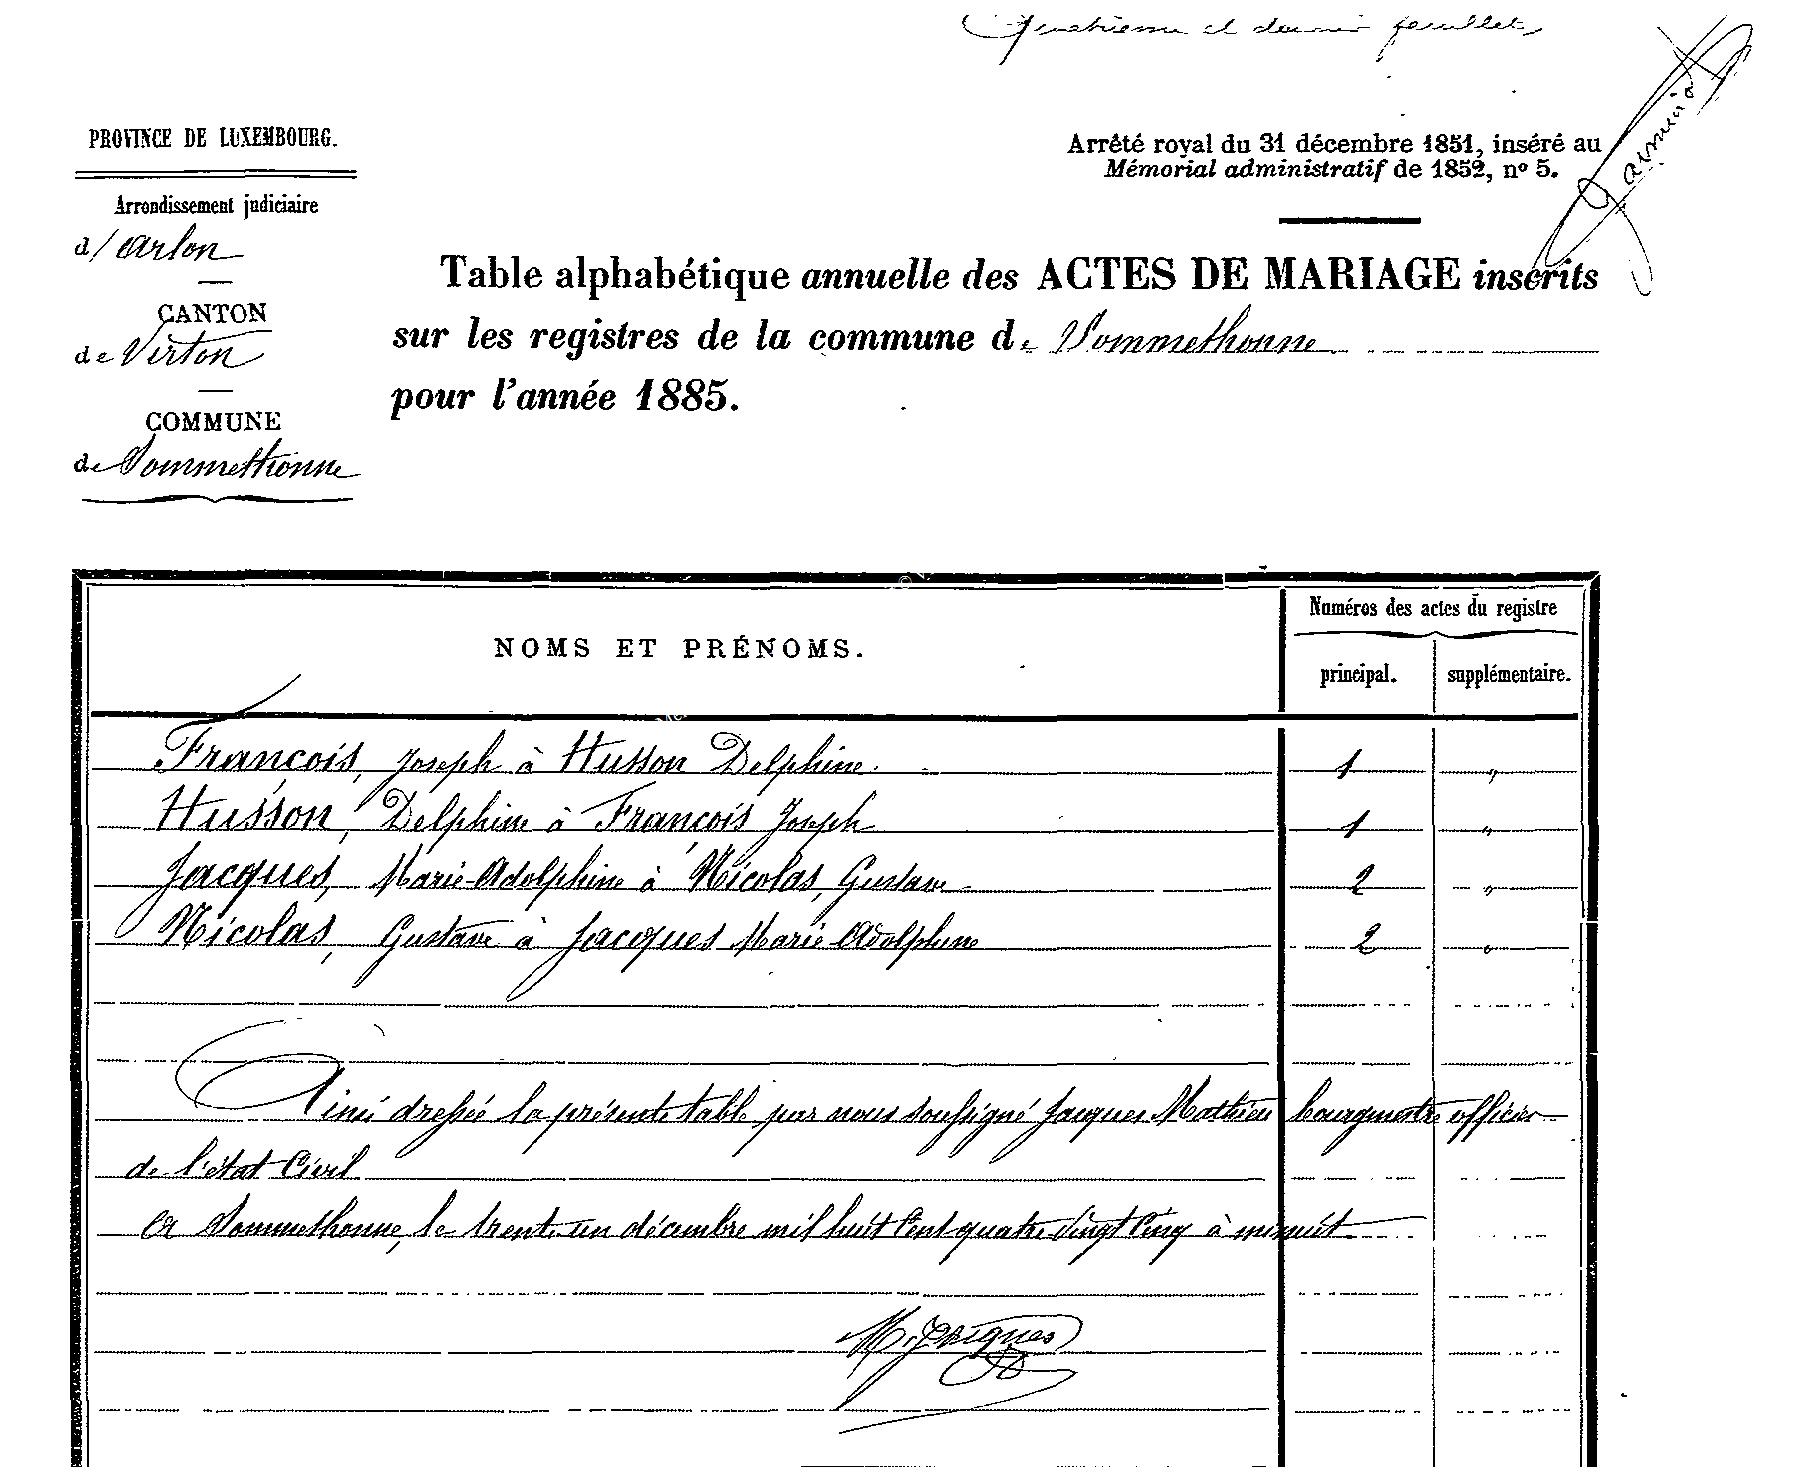 Quatrième et dernier feuillet
PROVINCE DE LUXEMBOURG.
Arrondissement judiciaire
d'Arlon
CANTON
de Virton
COMMUNE
de Sommethonne
Arrêté royal du 31 décembre 1851, inséré au
Mémorial administratif de 1852, nº 5.
Table alphabétique annuelle des ACTES DE MARIAGE inscrits
sur les registres de la commune de Sommethonne
pour l'année 1885.
NOMS ET PRÉNOMS.
Numéros des actes du registre
principal. supplémentaire.
François, Joseph à Husson Delphine. 1 "
Husson, Delphine à François Joseph 1 "
Jacques, Marie-Adolphine à Nicolas, Gustave 2 "
Nicolas, Gustave à Jacques Marie Adolphine 2 "
Ainsi dressée la présente table par nous soussigné Jacques Mathieu bourgmestre officier
de l'état Civil
A Sommethonne, le trente-un décembre mil huit Cent quatre vingt Cinq à minuit
M. Jacques